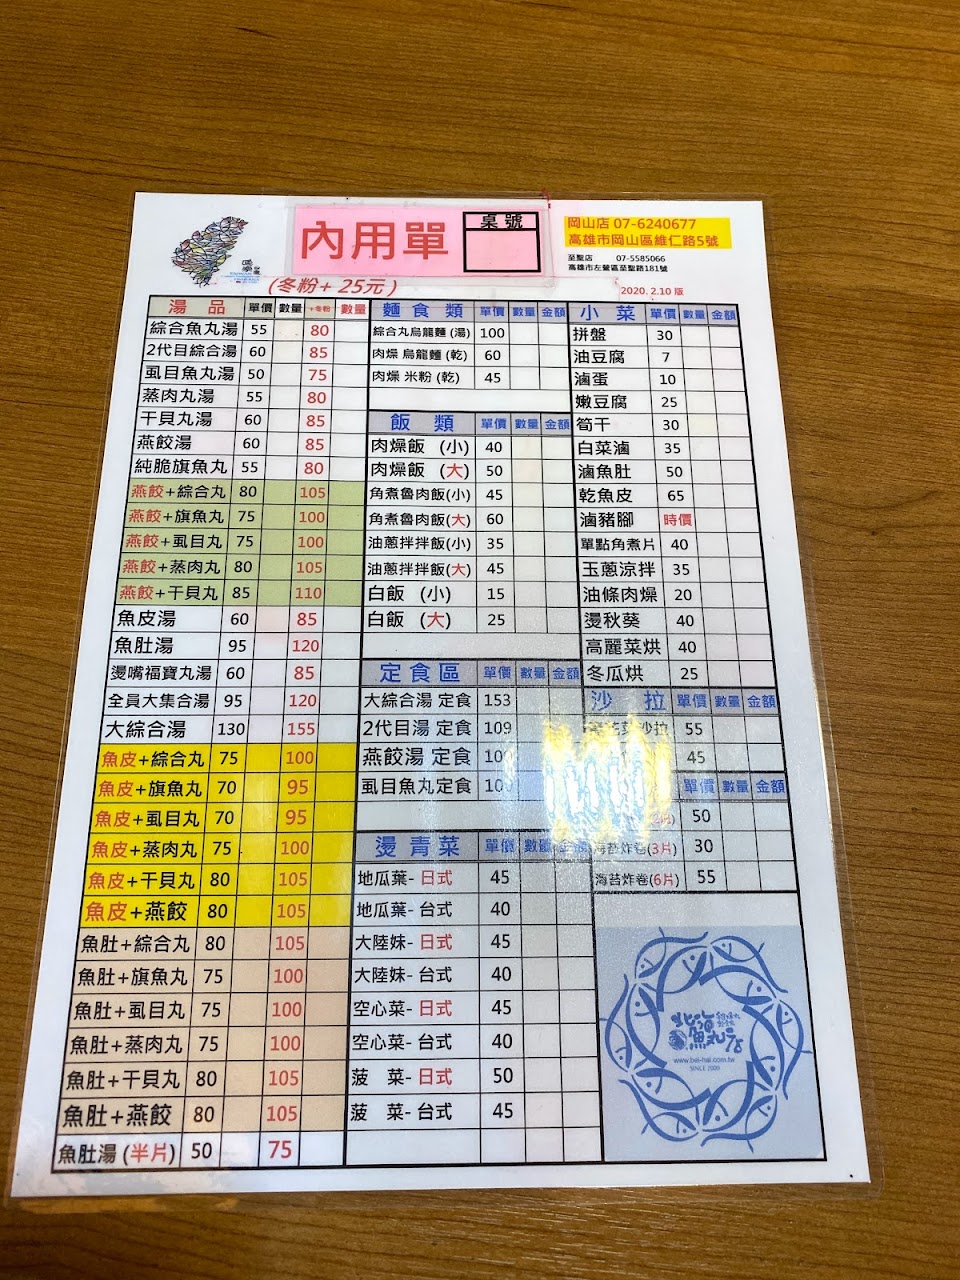 內用單
桌號
岡山店 07-6240677
高雄市岡山區維仁路5號
至聖店 07-5585066
高雄市左營區至聖路181號
(冬粉+ 25元)
2020. 2.10 版
湯 品 單價 數量 +冬粉 數量
綜合魚丸湯 55 80
2代目綜合湯 60 85
虱目魚丸湯 50 75
蒸肉丸湯 55 80
干貝丸湯 60 85
燕餃湯 60 85
純脆旗魚丸 55 80
燕餃+綜合丸 80 105
燕餃+旗魚丸 75 100
燕餃+虱目丸 75 100
燕餃+蒸肉丸 80 105
燕餃+干貝丸 85 110
魚皮湯 60 85
魚肚湯 95 120
燙嘴福寶丸湯 60 85
全員大集合湯 95 120
大綜合湯 130 155
魚皮+綜合丸 75 100
魚皮+旗魚丸 70 95
魚皮+虱目丸 70 95
魚皮+蒸肉丸 75 100
魚皮+干貝丸 80 105
魚皮+燕餃 80 105
魚肚+綜合丸 80 105
魚肚+旗魚丸 75 100
魚肚+虱目丸 75 100
魚肚+蒸肉丸 75 100
魚肚+干貝丸 80 105
魚肚+燕餃 80 105
魚肚湯 (半片) 50 75
麵 食 類 單價 數量 金額
綜合丸烏龍麵 (湯) 100
肉燥 烏龍麵 (乾) 60
肉燥 米粉 (乾) 45
飯 類 單價 數量 金額
肉燥飯 (小) 40
肉燥飯 (大) 50
角煮魯肉飯(小) 45
角煮魯肉飯(大) 60
油蔥拌拌飯(小) 35
油蔥拌拌飯(大) 45
白飯 (小) 15
白飯 (大) 25
定 食 區 單價 數量 金額
大綜合湯 定食 153
2代目湯 定食 109
燕餃湯 定食
虱目魚丸定食
燙 青 菜 單價 數量 金額
地瓜葉- 日式 45
地瓜葉- 台式 40
大陸妹- 日式 45
大陸妹- 台式 40
空心菜- 日式 45
空心菜- 台式 40
菠 菜- 日式 50
菠 菜- 台式 45
小 菜 單價 數量 金額
拼盤 30
油豆腐 7
滷蛋 10
嫩豆腐 25
筍干 30
白菜滷 35
滷魚肚 50
乾魚皮 65
滷豬腳 時價
單點角煮片 40
玉蔥涼拌 35
油條肉燥 20
燙秋葵 40
高麗菜烘 40
冬瓜烘 25
沙 拉 單價 數量 金額
沙拉 55
45
單價 數量 金額
50
海苔炸卷(3片) 30
海苔炸卷(6片) 55
北海
魚丸
www.bei-hai.com.tw
SINCE 2009